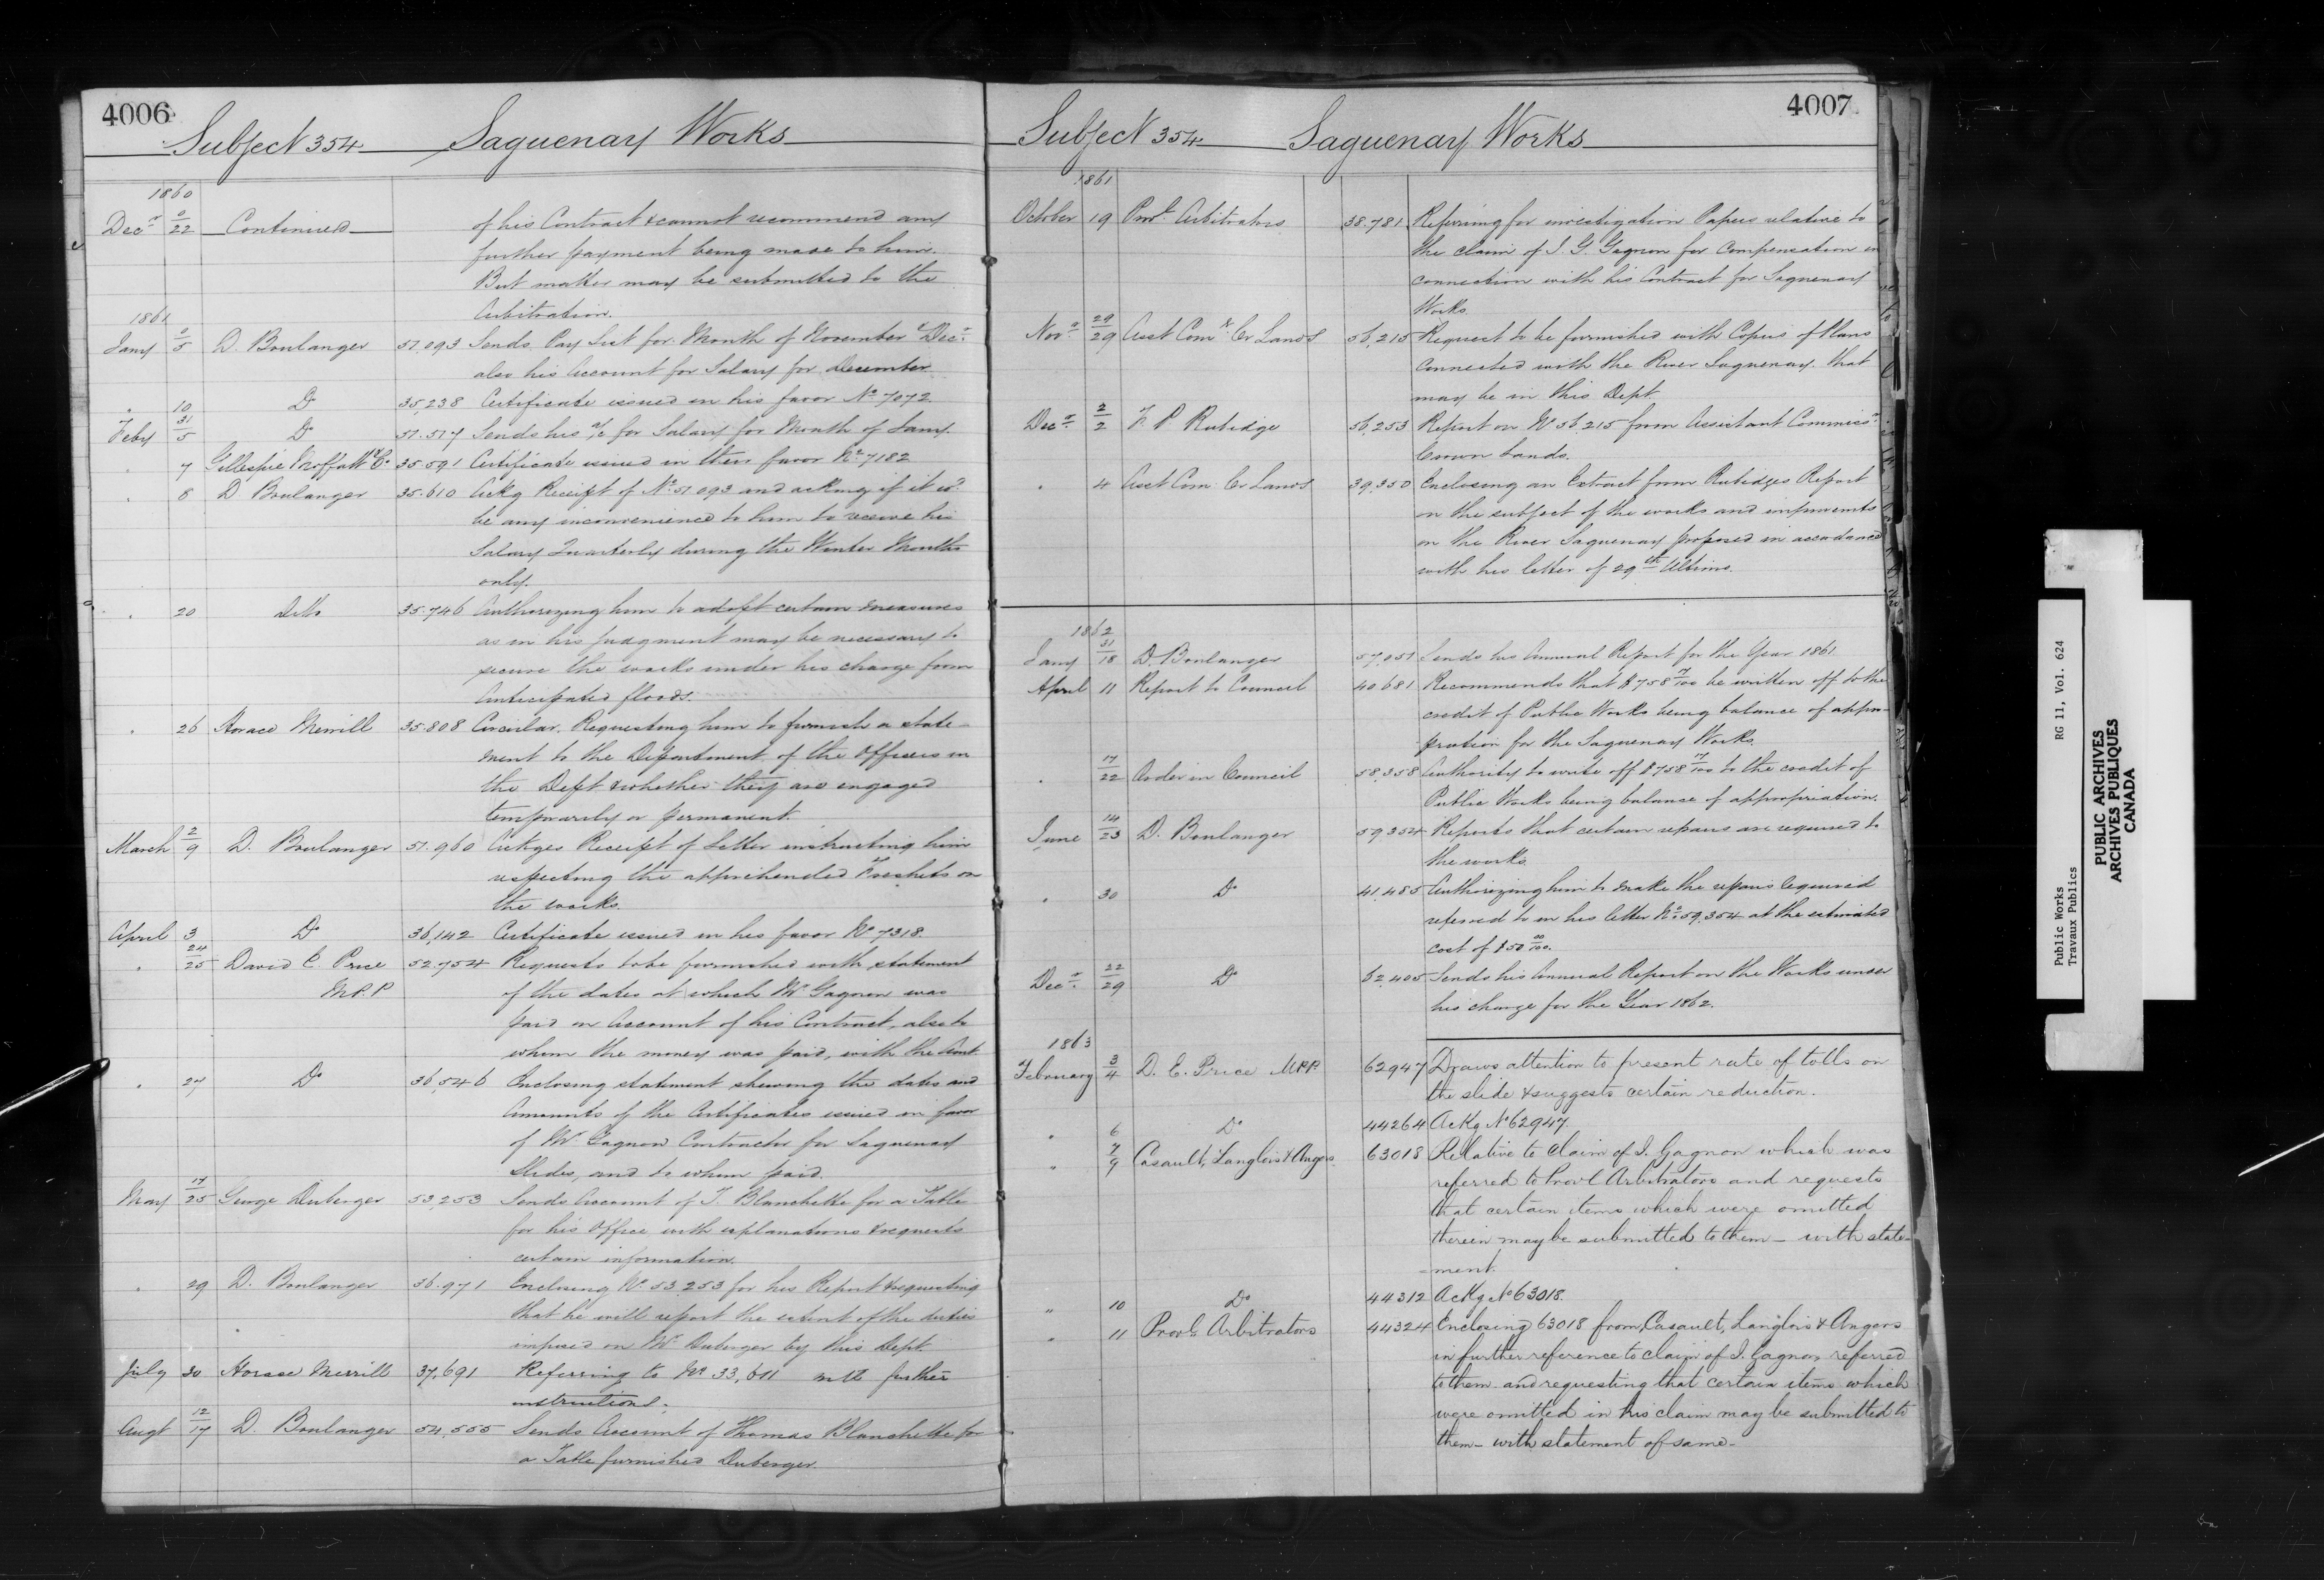 4006
Subject 354 Saguenay Works
1860
Decr 0/22 Continued of his Contract & cannot recommend any
further payment being made to him.
But matter may be submitted to the
Arbitration.
1861
Jany 0/5 D. Boulanger 51,093 Sends Pay List for Month of November & Decr
also his Account for Salary for December
" 10 Do 35,238 Certificate issued in his favor No 7072
Feby 31/5 Do 51.517 Sends his a/c for Salary for Month of Jany.
" 7 Gillespie Moffatt & Co 35.591 Certificate issued in their favor No 7182
" 8 D Boulanger 35.610 Ackg Receipt of No 51.093 and asking if it wd
be any inconvenience to him to receive his
Salary Quarterly during the Winter Months
only.
" 20 Ditto 35.746 Authorizing him to adopt certain measures
as in his judgment may be necessary to
secure the works under his charge from
Anticipated floods.
" 26 Horace Merrill 35.808 Circular. Requesting him to furnish a state-
ment to the Department of the Officers in
the Dept & whether they are engaged
temporarily or permanent.
March 2/9 D. Boulanger 51.960 Acknges Receipt of Letter instructing him
respecting the apprehended Freshets on
the works.
April 3 Do 36,142 Certificate issued in his favor No 7318.
" 24/25 David E. Price 52.754 Requests to be furnished with statement
M.P.P of the dates at which Mr Gagnon was
paid on Account of his Contract, also to
whom the money was paid, with the Amt
" 27 Do 36,546 Enclosing statement shewing the dates and
Amounts of the Certificates issued in favor
of Mr Gagnon Contractor for Saguenay
Slides, and to whom paid.
May 17/25 George Duberger 53,253 Sends Account of T. Blanchette for a Table
for his Office with explanations & requests
certain information.
" 29 D. Boulanger 36.971 Enclosing No 53.253 for his Report & requesting
that he will report the extent of the duties
imposed on Mr Duberger by this Dept.
July 30 Horace Merrill 37,691 Referring to No 33,611 with further
instructions.
Augt 12/17 D. Boulanger 54,555 Sends Account of Thomas Blanchette for
a Table furnished Duberger.
4007
Subject 354 Saguenay Works
1861
October 19 Provl Arbitrators 38.781 Referring for investigation Papers relative to
the claim of I. G. Gagnon for Compensation in
connection with his Contract for Saguenay
Works.
Novr 29/29 Asst Comr Cr Lands 56,215 Request to be furnished with Copies of Plans
Connected with the River Saguenay. that
may be in this Dept
Decr 2/2 F. P. Rubidge 56,253 Report on No 56,215 from Assistant Commissr
Crown Lands.
" 4 Asst Com Cr Lands 39,350 Enclosing an Extract from Rubidges Report
on the subject of the works and improvemts
on the River Saguenay proposed in accordance
with his letter of 29th Ultimo.
1862
Jany 31/18 D. Boulanger 57,051 Sends his Annual Report for the Year 1861
April 11 Report to Council 40.681 Recommends that $758 17/100 be written off to the
credit of Public Works being balance of appro-
priation for the Saguenay Works.
" 17/22 Order in Council 58,358 Authority to write off $758 17/100 to the credit of
Public Works being balance of appropriation.
June 14/23 D. Boulanger 59,354 Reports that certain repairs are required to
the works.
" 30 Do 41,485 Authorizing him to make the repairs required
referred to in his letter No 59,354 at the estimated
cost of $50 00/100.
Decr 22/29 Do 62,405 Sends his Annual Report on the Works under
his charge for the Year 1862.
1863
February 3/4 D. E. Price MPP. 62947 Draws attention to present rate of tolls on
the slide & suggests certain reduction.
" 6 Do 44264 Ackg No 62947.
" 7/9 Casault, Langlois & Angers 63018 Relative to Claim of I. Gagnon which was
referred to Provl Arbitrators and requests
that certain items which were omitted
therein may be submitted to them – with state-
ment.
" 10 Do 44312 Ackg No 63018.
" 11 Provl Arbitrators 44324 Enclosing 63018 from Casault, Langlois & Angers
in further reference to claim of I. Gagnon referred
to them and requesting that certain items which
were omitted in his claim may be submitted to
them – with statement of same –
Public Works RG 11, Vol. 624
Travaux Publics
PUBLIC ARCHIVES
ARCHIVES PUBLIQUES
CANADA